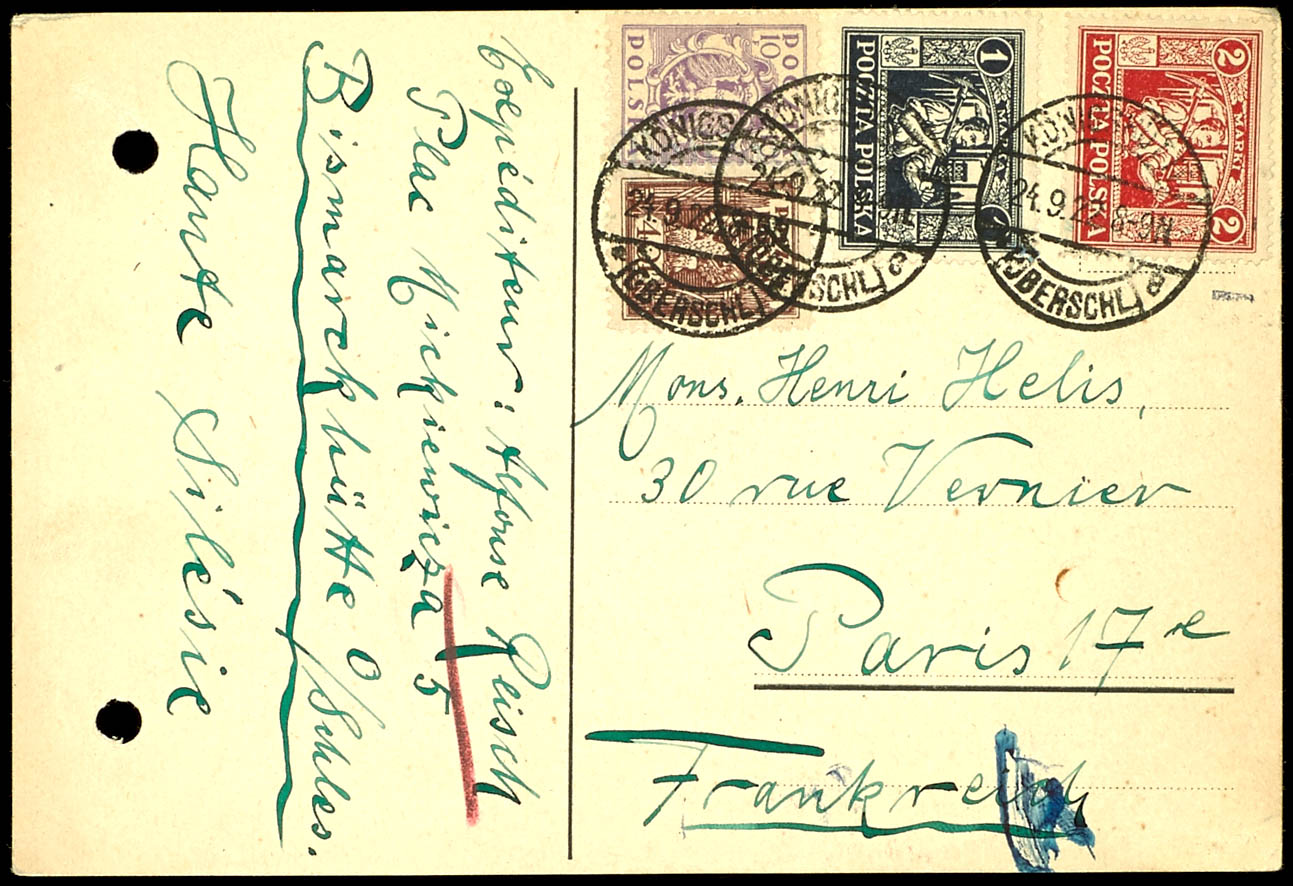 Expéditeur: Alfonse Reisch
Plac Mickiewicza 5
Bismarckhütte O/Schles.
Haute Silésie
10
POLS
1 MARKA 1
POCZTA POLSKA
2 MARKI 2
POCZTA POLSKA
KÖNIGSH
24.9.22
(OBERSCHL) e
KÖNIGSHÜTTE
24.9.22 8-9N
(OBERSCHL) e
KÖNIGSHÜTTE
24.9.22 8-9N
(OBERSCHL) e
Mons. Henri Helis,
30 rue Vernier
Paris 17e
Frankreich